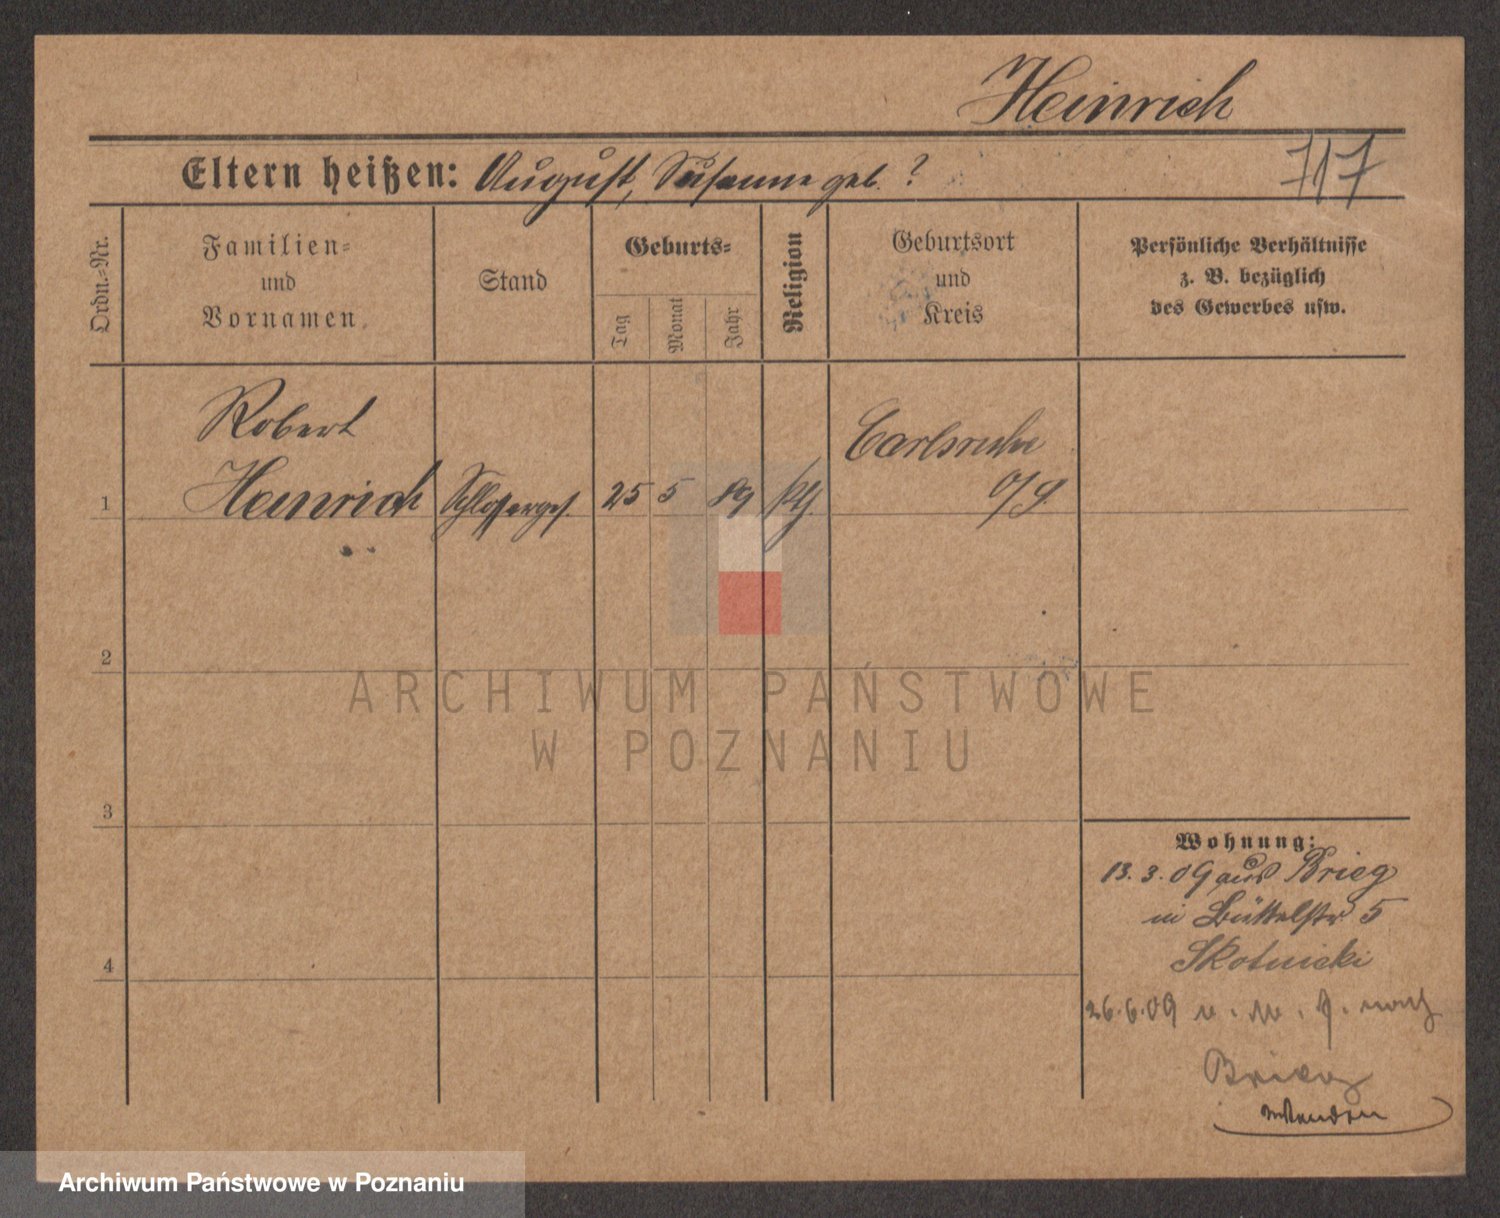 Heinrich
Eltern heißen: August, Susanne geb. ?
717
Ordn.-Nr.
Familien-
und
Vornamen
Stand
Geburts-
Tag
Monat
Jahr
Religion
Geburtsort
und
Kreis
Persönliche Verhältnisse
z. B. bezüglich
des Gewerbes usw.
Robert
Carlsruhe
1 Heinrich Schlosserges. 25 5 89 kth. O/S.
2
ARCHIWUM PAŃSTWOWE
W POZNANIU
3
Wohnung:
13.3.09 aus Brieg
in Büttelstr 5
Skotnicki
4
26.6.09 nach
Brieg
Archiwum Państwowe w Poznaniu